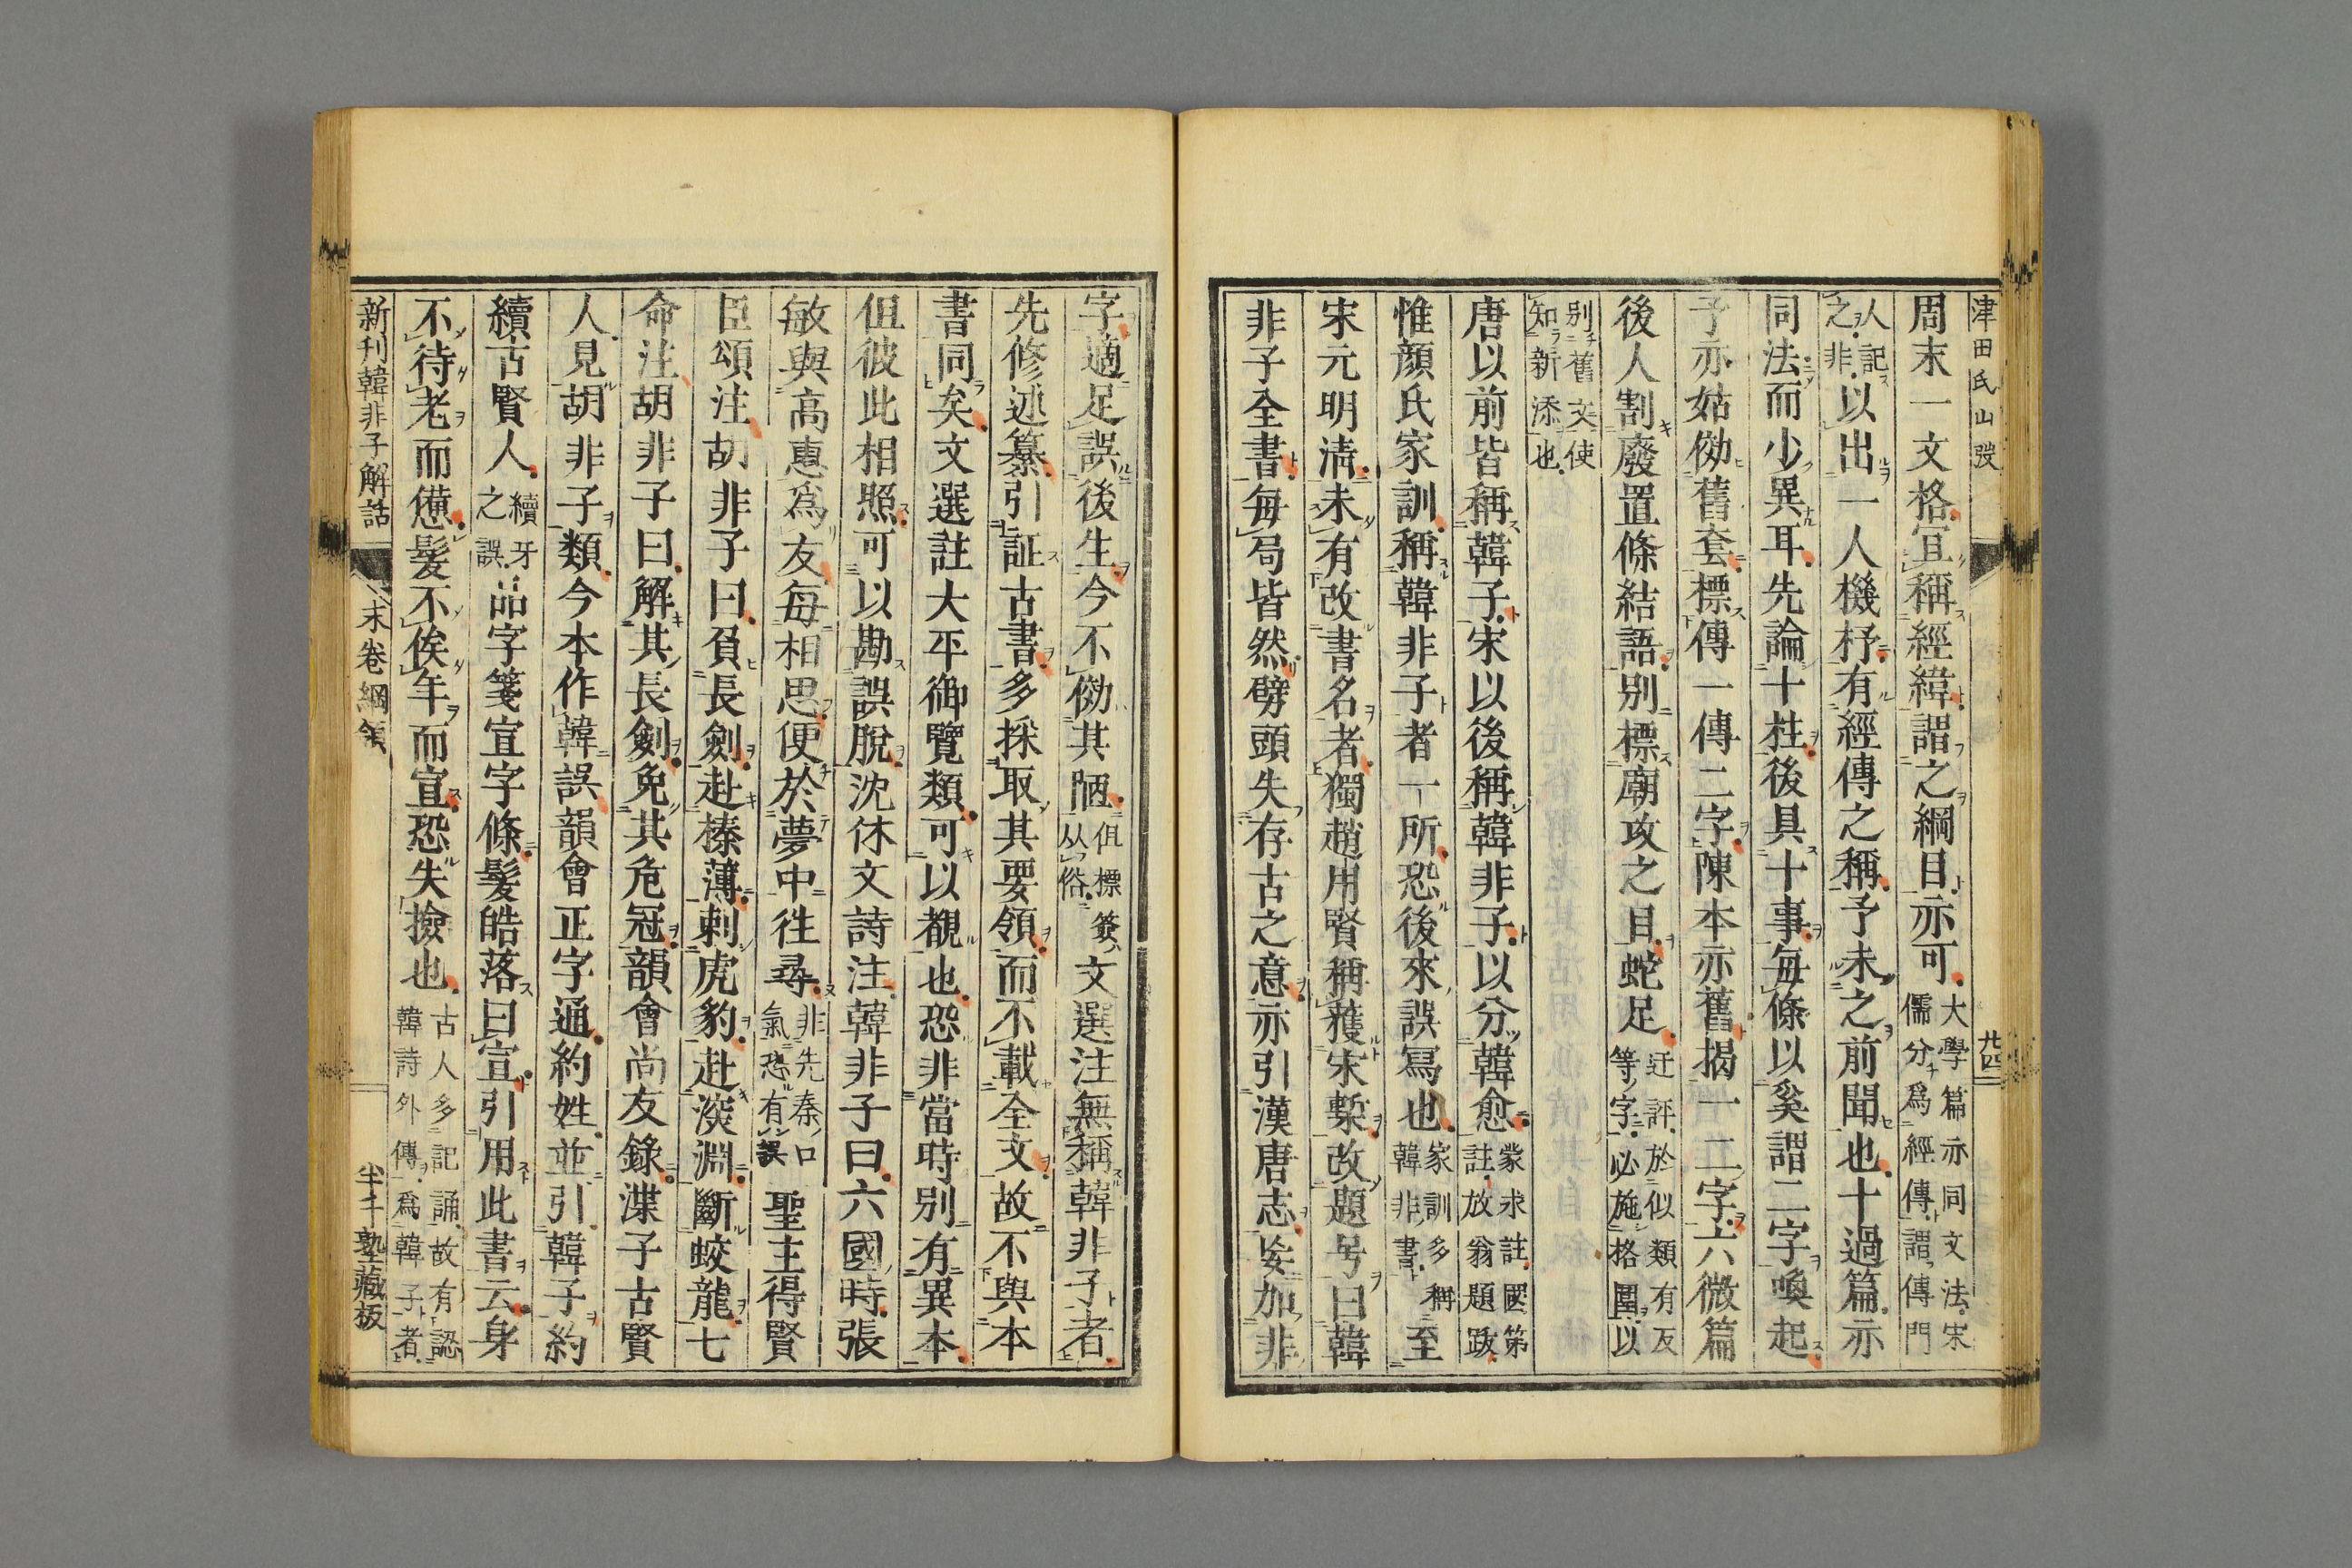 津田氏山彂
廿四
周末一文格宜稱經緯謂之綱目亦可大學篇亦同文法宋儒分爲經傳謂傳門
人記之非以出一人機杼有經傳之稱予未之前聞也十過篇亦
同法而少異耳先論十柱後具十事每條以奚謂二字喚起
予亦姑効舊套標傳一傳二字陳本亦舊揭一二字六微篇
後人割廢置條結語別標廟攻之目蛇足迂評於似類有反等字必施格圍以
別舊文使知新添也
唐以前皆稱韓子宋以後稱韓非子以分韓愈蒙求註國第註放翁題跋
惟顏氏家訓稱韓非子者一所恐後來誤冩也家訓多稱韓非書至
宋元明淸未有改書名者獨趙用賢稱獲宋槧改題号曰韓
非子全書每局皆然劈頭失存古之意亦引漢唐志妄加非
字適足誤後生今不効其陋但標箋从俗文選注無稱韓非子者
先修述纂引証古書多採取其要領而不載全文故不與本
書同矣文選註大平御覽類可以覩也恐非當時別有異本
但彼此相照可以勘誤脫沈休文詩注韓非子曰六國時張
敏與高惠爲友每相思便於夢中徃尋非先秦口氣恐有誤聖主得賢
臣頌注胡非子曰負長劍赴榛薄刺虎豹赴深淵斷蛟龍七
命注胡非子曰解其長劍免其危冠韻會尚友錄渫子古賢
人見胡非子類今本作韓誤韻會正字通約姓並引韓子約
續古賢人續牙之誤品字箋宣字條髮皓落曰宣引用此書云身
不待老而憊髮不俟年而宣恐失撿也古人多記誦故有認韓詩外傳爲韓子者
新刊韓非子解詁
末卷綱領
半千塾藏板